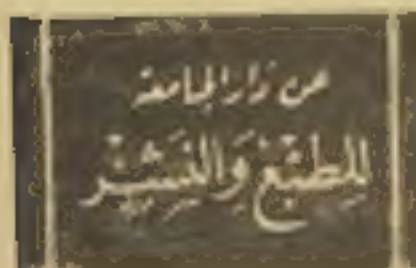 عن دار الجامعة
للطبع والنشر